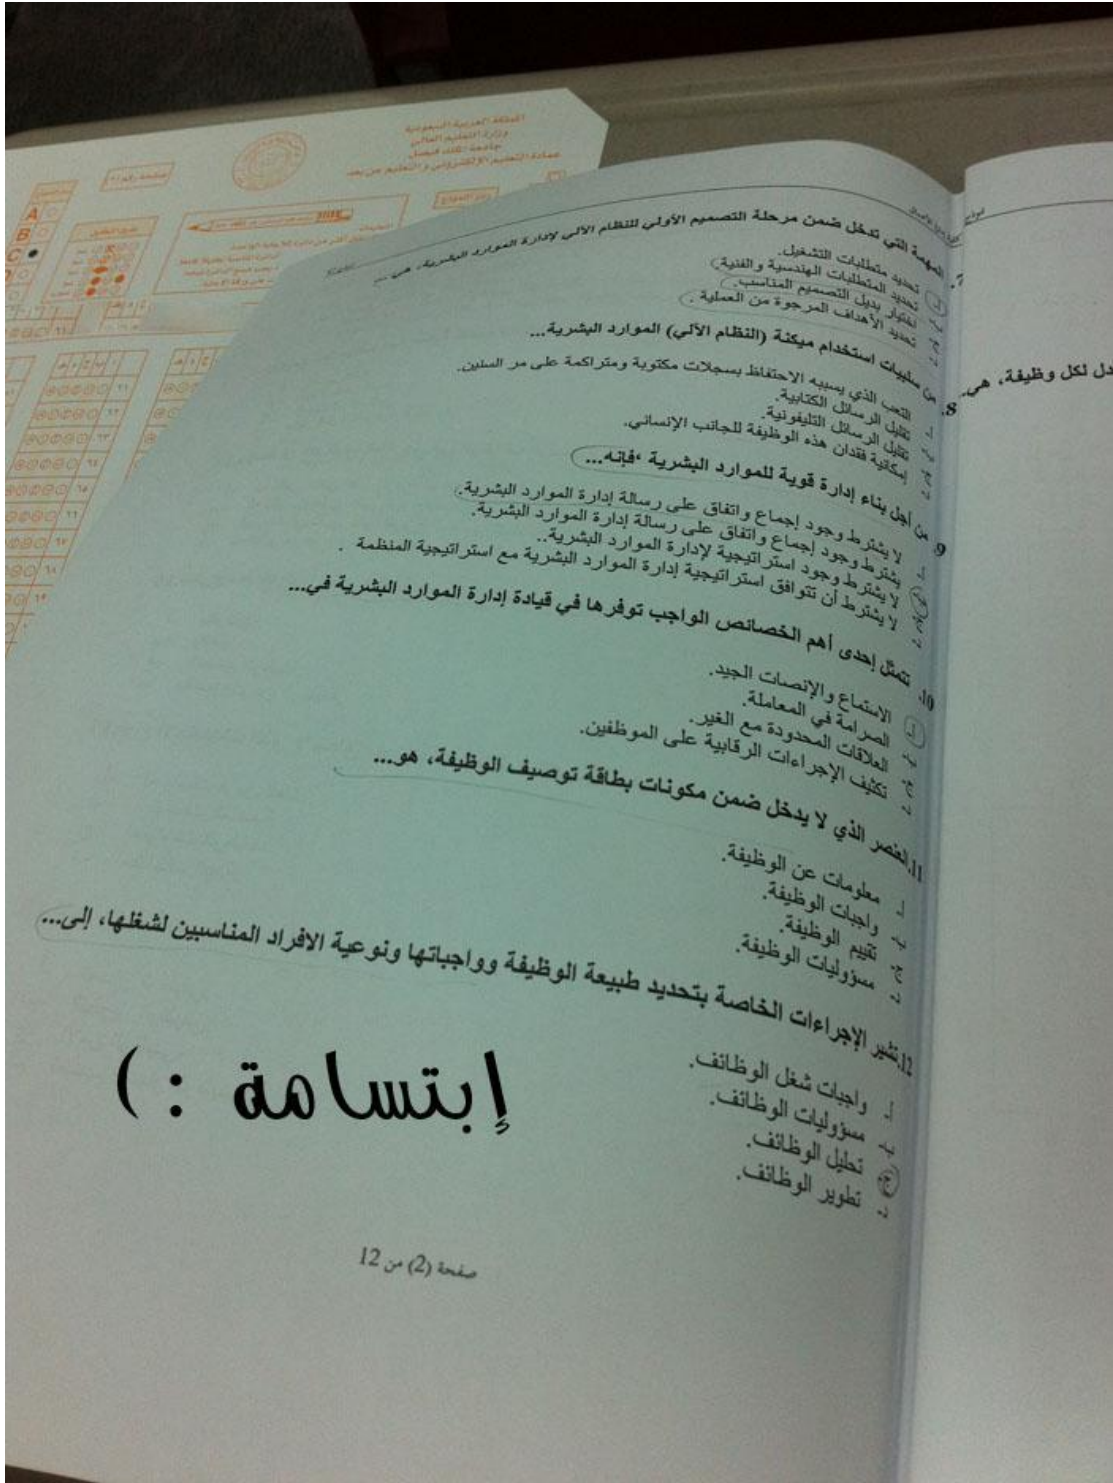 المملكة العربية السعودية
وزارة التعليم العالي
جامعة الملك فيصل
عمادة التعليم الإلكتروني والتعليم عن بعد
7. المهمة التي تدخل ضمن مرحلة التصميم الأولي للنظام الآلي لإدارة الموارد البشرية، هي...
أ- تحديد متطلبات التشغيل.
ب- تحديد المتطلبات الهندسية والفنية.
ج- اختيار بديل التصميم المناسب.
د- تحديد الأهداف المرجوة من العملية.
8. من سلبيات استخدام ميكنة (النظام الآلي) الموارد البشرية...
أ- التعب الذي يسببه الاحتفاظ بسجلات مكتوبة ومتراكمة على مر السنين.
ب- تقليل الرسائل الكتابية.
ج- تقليل الرسائل التليفونية.
د- إمكانية فقدان هذه الوظيفة للجانب الإنساني.
9. من أجل بناء إدارة قوية للموارد البشرية ،فإنه...
أ- لا يشترط وجود إجماع واتفاق على رسالة إدارة الموارد البشرية.
ب- يشترط وجود إجماع واتفاق على رسالة إدارة الموارد البشرية.
ج- لا يشترط وجود استراتيجية لإدارة الموارد البشرية..
د- لا يشترط أن تتوافق استراتيجية إدارة الموارد البشرية مع استراتيجية المنظمة .
10. تتمثل إحدى أهم الخصائص الواجب توفرها في قيادة إدارة الموارد البشرية في...
أ- الاستماع والإنصات الجيد.
ب- الصرامة في المعاملة.
ج- العلاقات المحدودة مع الغير.
د- تكثيف الإجراءات الرقابية على الموظفين.
11. العنصر الذي لا يدخل ضمن مكونات بطاقة توصيف الوظيفة، هو...
أ- معلومات عن الوظيفة.
ب- واجبات الوظيفة.
ج- تقييم الوظيفة.
د- مسؤوليات الوظيفة.
12. تشير الإجراءات الخاصة بتحديد طبيعة الوظيفة وواجباتها ونوعية الافراد المناسبين لشغلها، إلى...
أ- واجبات شغل الوظائف.
ب- مسؤوليات الوظائف.
ج- تحليل الوظائف.
د- تطوير الوظائف.
إبتسامة : )
صفحة (2) من 12
دل لكل وظيفة، هي..